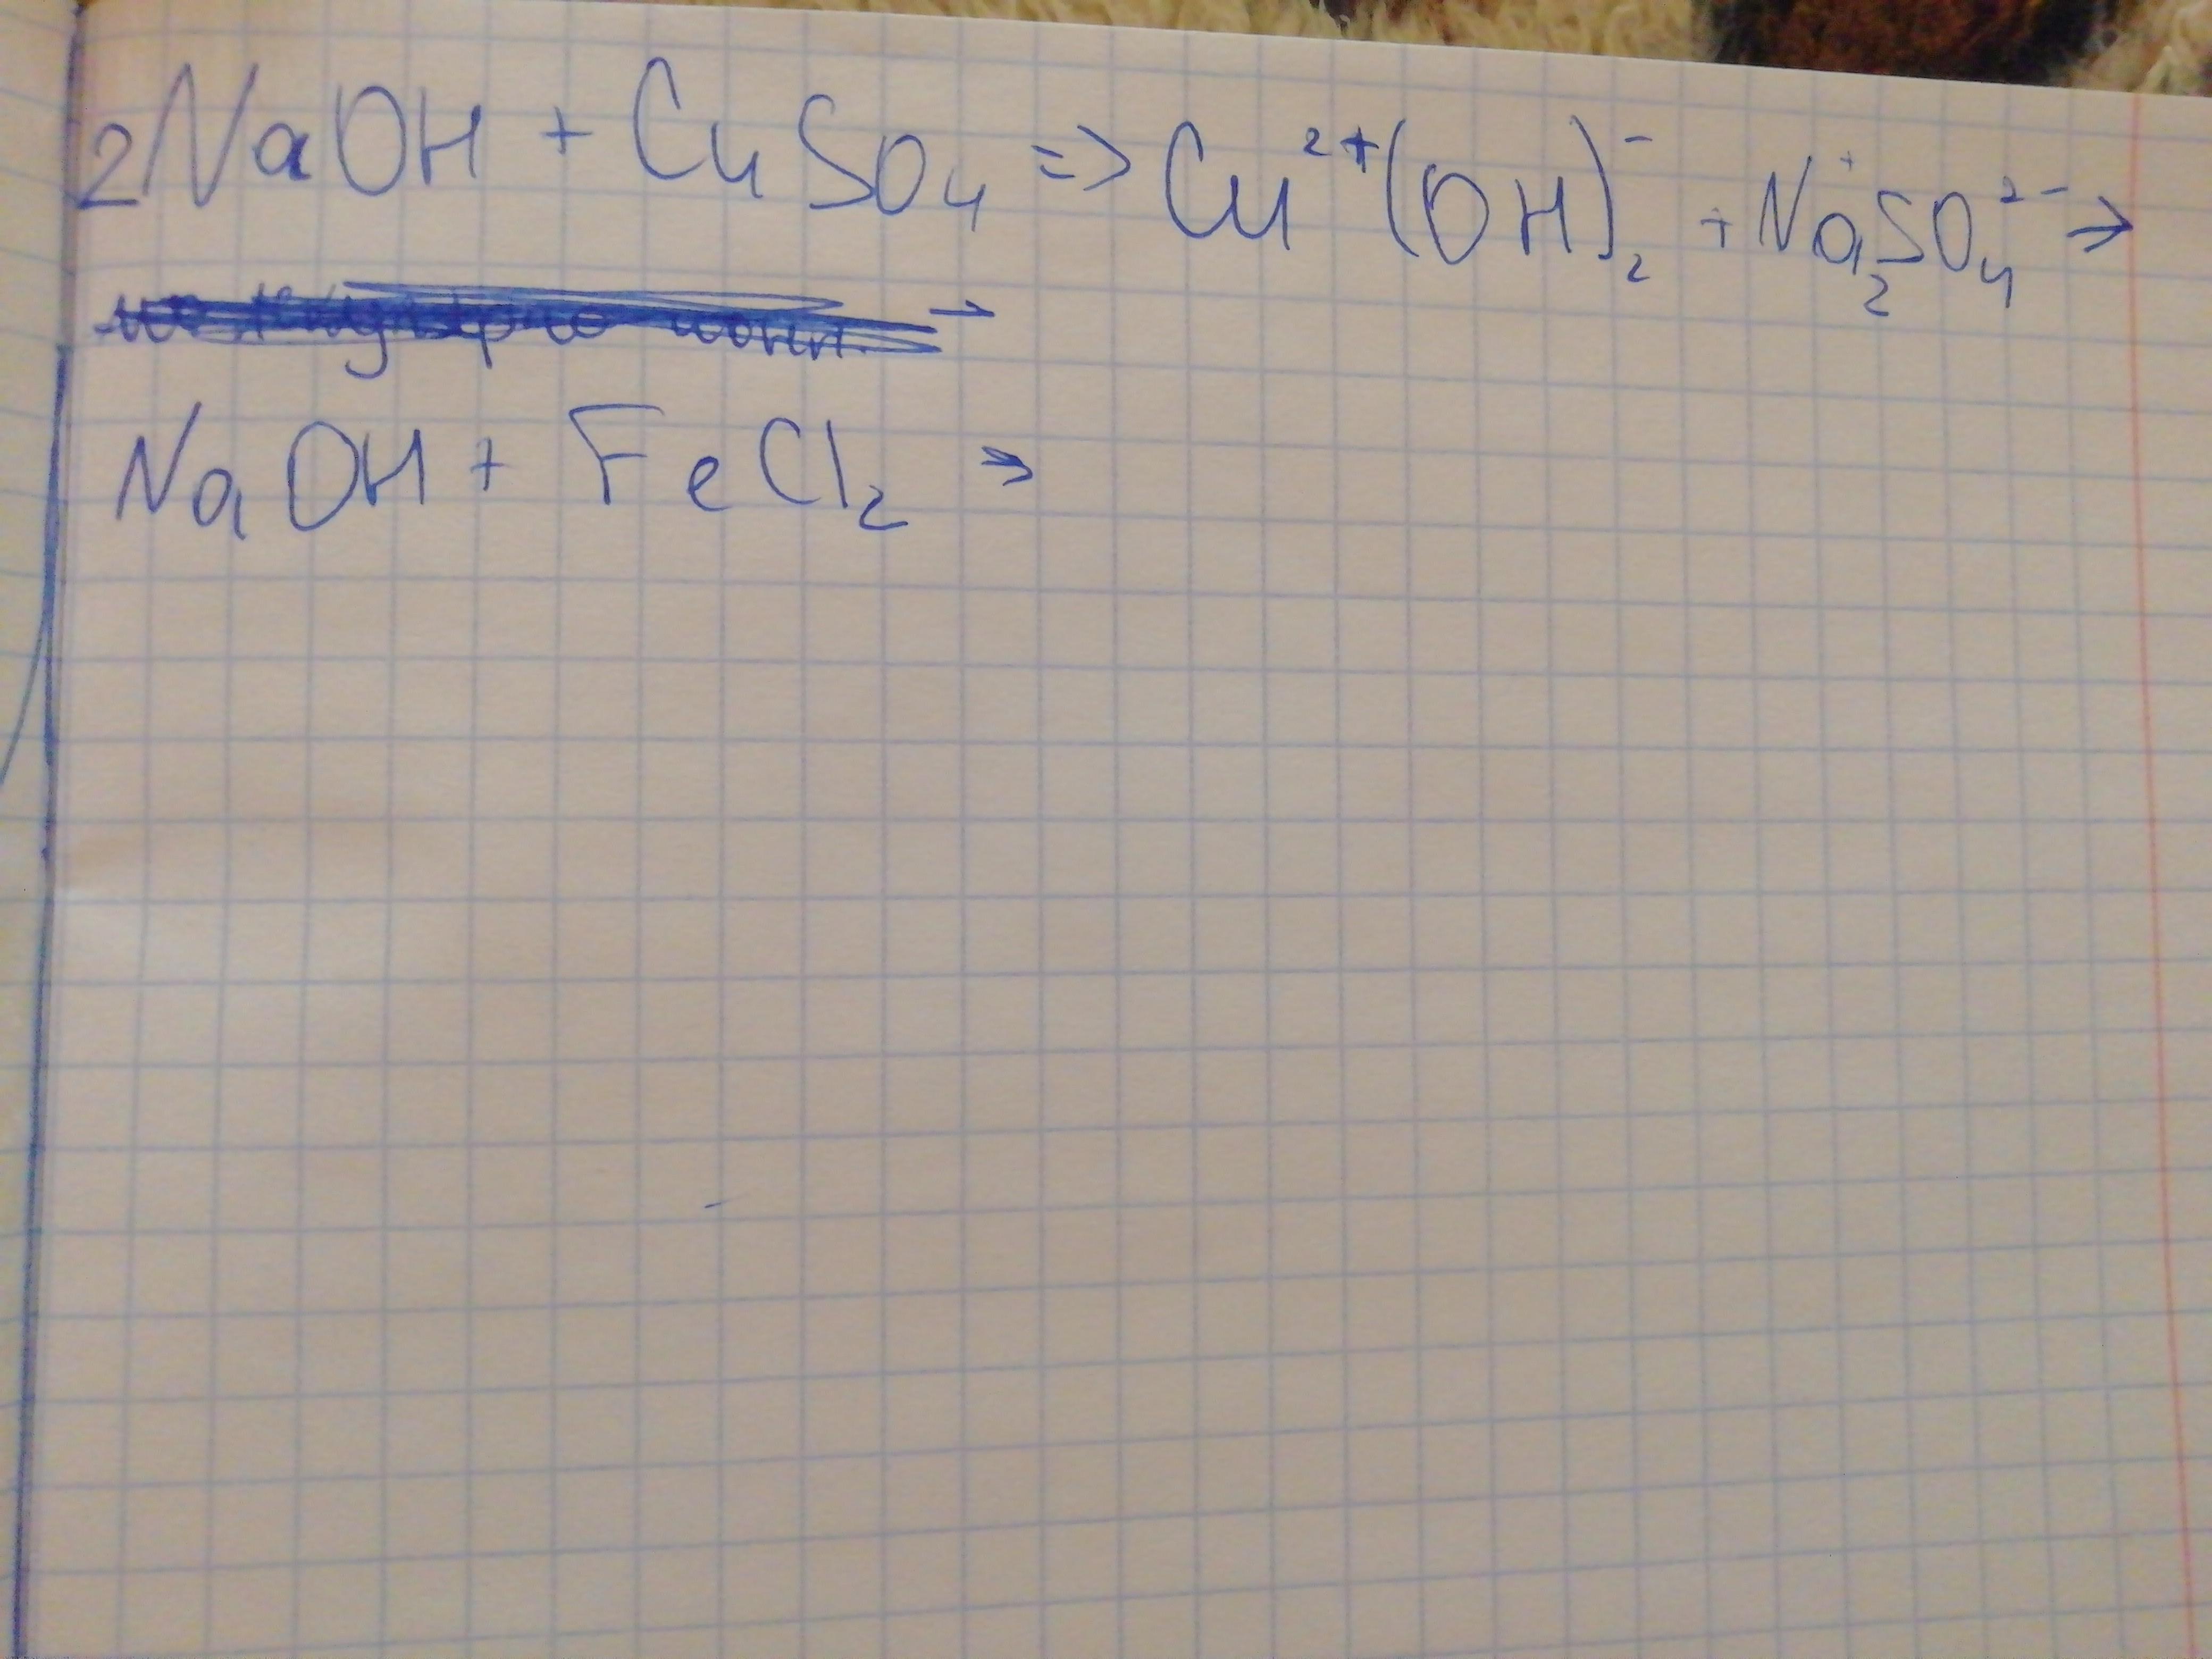 2NaOH + CuSO₄ => Cu²⁺(OH)₂⁻ + Na₂⁺SO₄²⁻ →
→
NaOH + FeCl₂ →